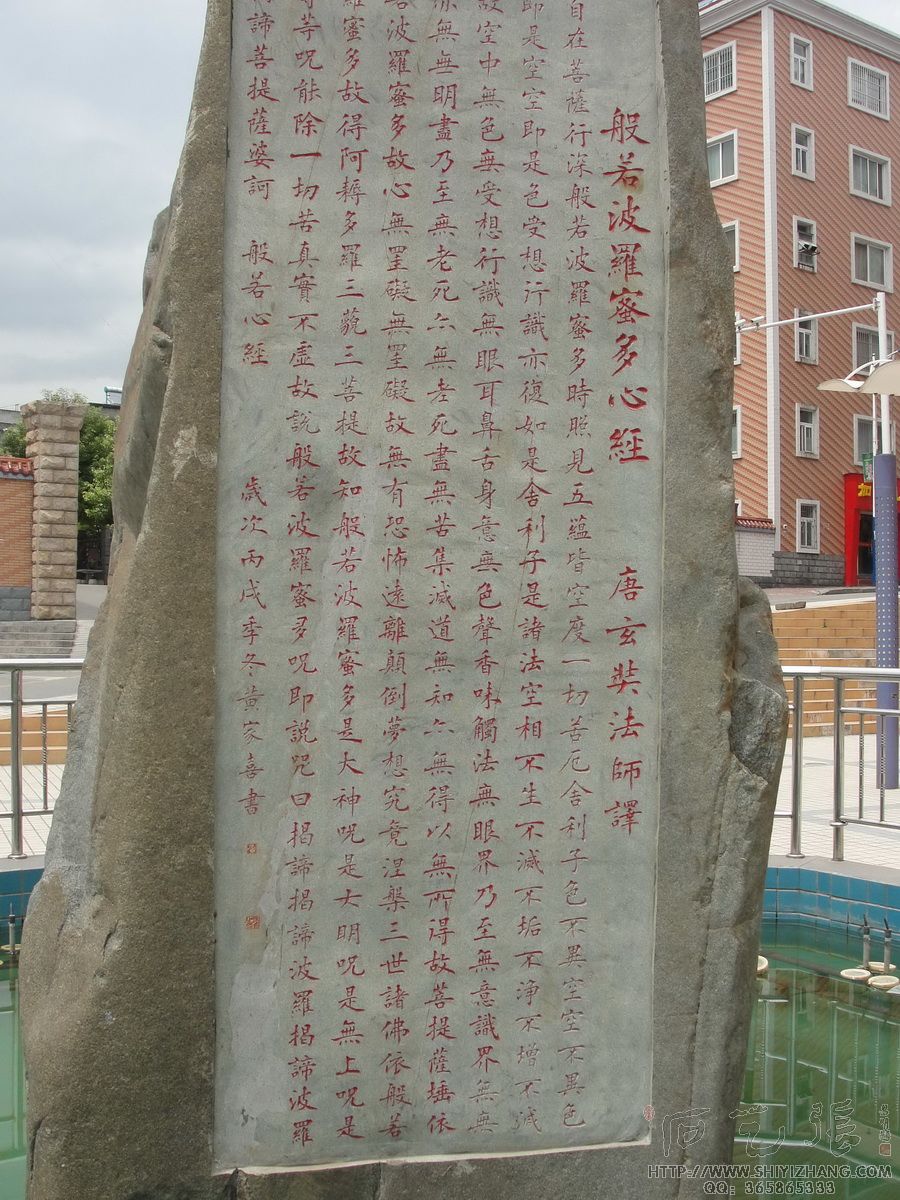 般若波羅蜜多心經 唐玄奘法師譯
自在菩薩行深般若波羅蜜多時照見五蘊皆空度一切苦厄舍利子色不異空空不異色
即是空空即是色受想行識亦復如是舍利子是諸法空相不生不滅不垢不淨不增不減
故空中無色無受想行識無眼耳鼻舌身意無色聲香味觸法無眼界乃至無意識界無無
亦無無明盡乃至無老死亦無老死盡無苦集滅道無知亦無得以無所得故菩提薩埵依
若波羅蜜多故心無罣礙無罣礙故無有恐怖遠離顛倒夢想究竟涅槃三世諸佛依般若
羅蜜多故得阿耨多羅三藐三菩提故知般若波羅蜜多是大神咒是大明咒是無上咒是
等咒能除一切苦真實不虛故說般若波羅蜜多咒即說咒曰揭諦揭諦波羅揭諦波羅
諦菩提薩婆訶 般若心經 歲次丙戌季冬黃家喜書
石艺张
HTTP://WWW.SHIYIZHANG.COM
QQ: 365865333